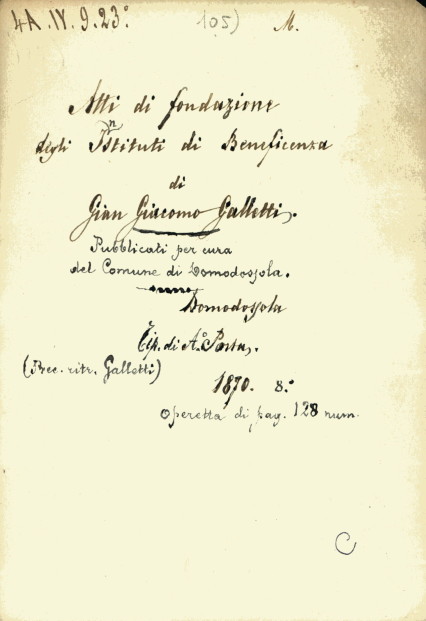 4A.IV.9.23°. 105) M.
Atti di fondazione
degli Instituti di Beneficenza
di
Gian Giacomo Galletti.
Pubblicati per cura
del Comune di Domodossola.
Domodossola
Tip. di A.° Porta.
(Precritr. Galletti)
1870. 8.°
Operetta di pag. 128 num.
C